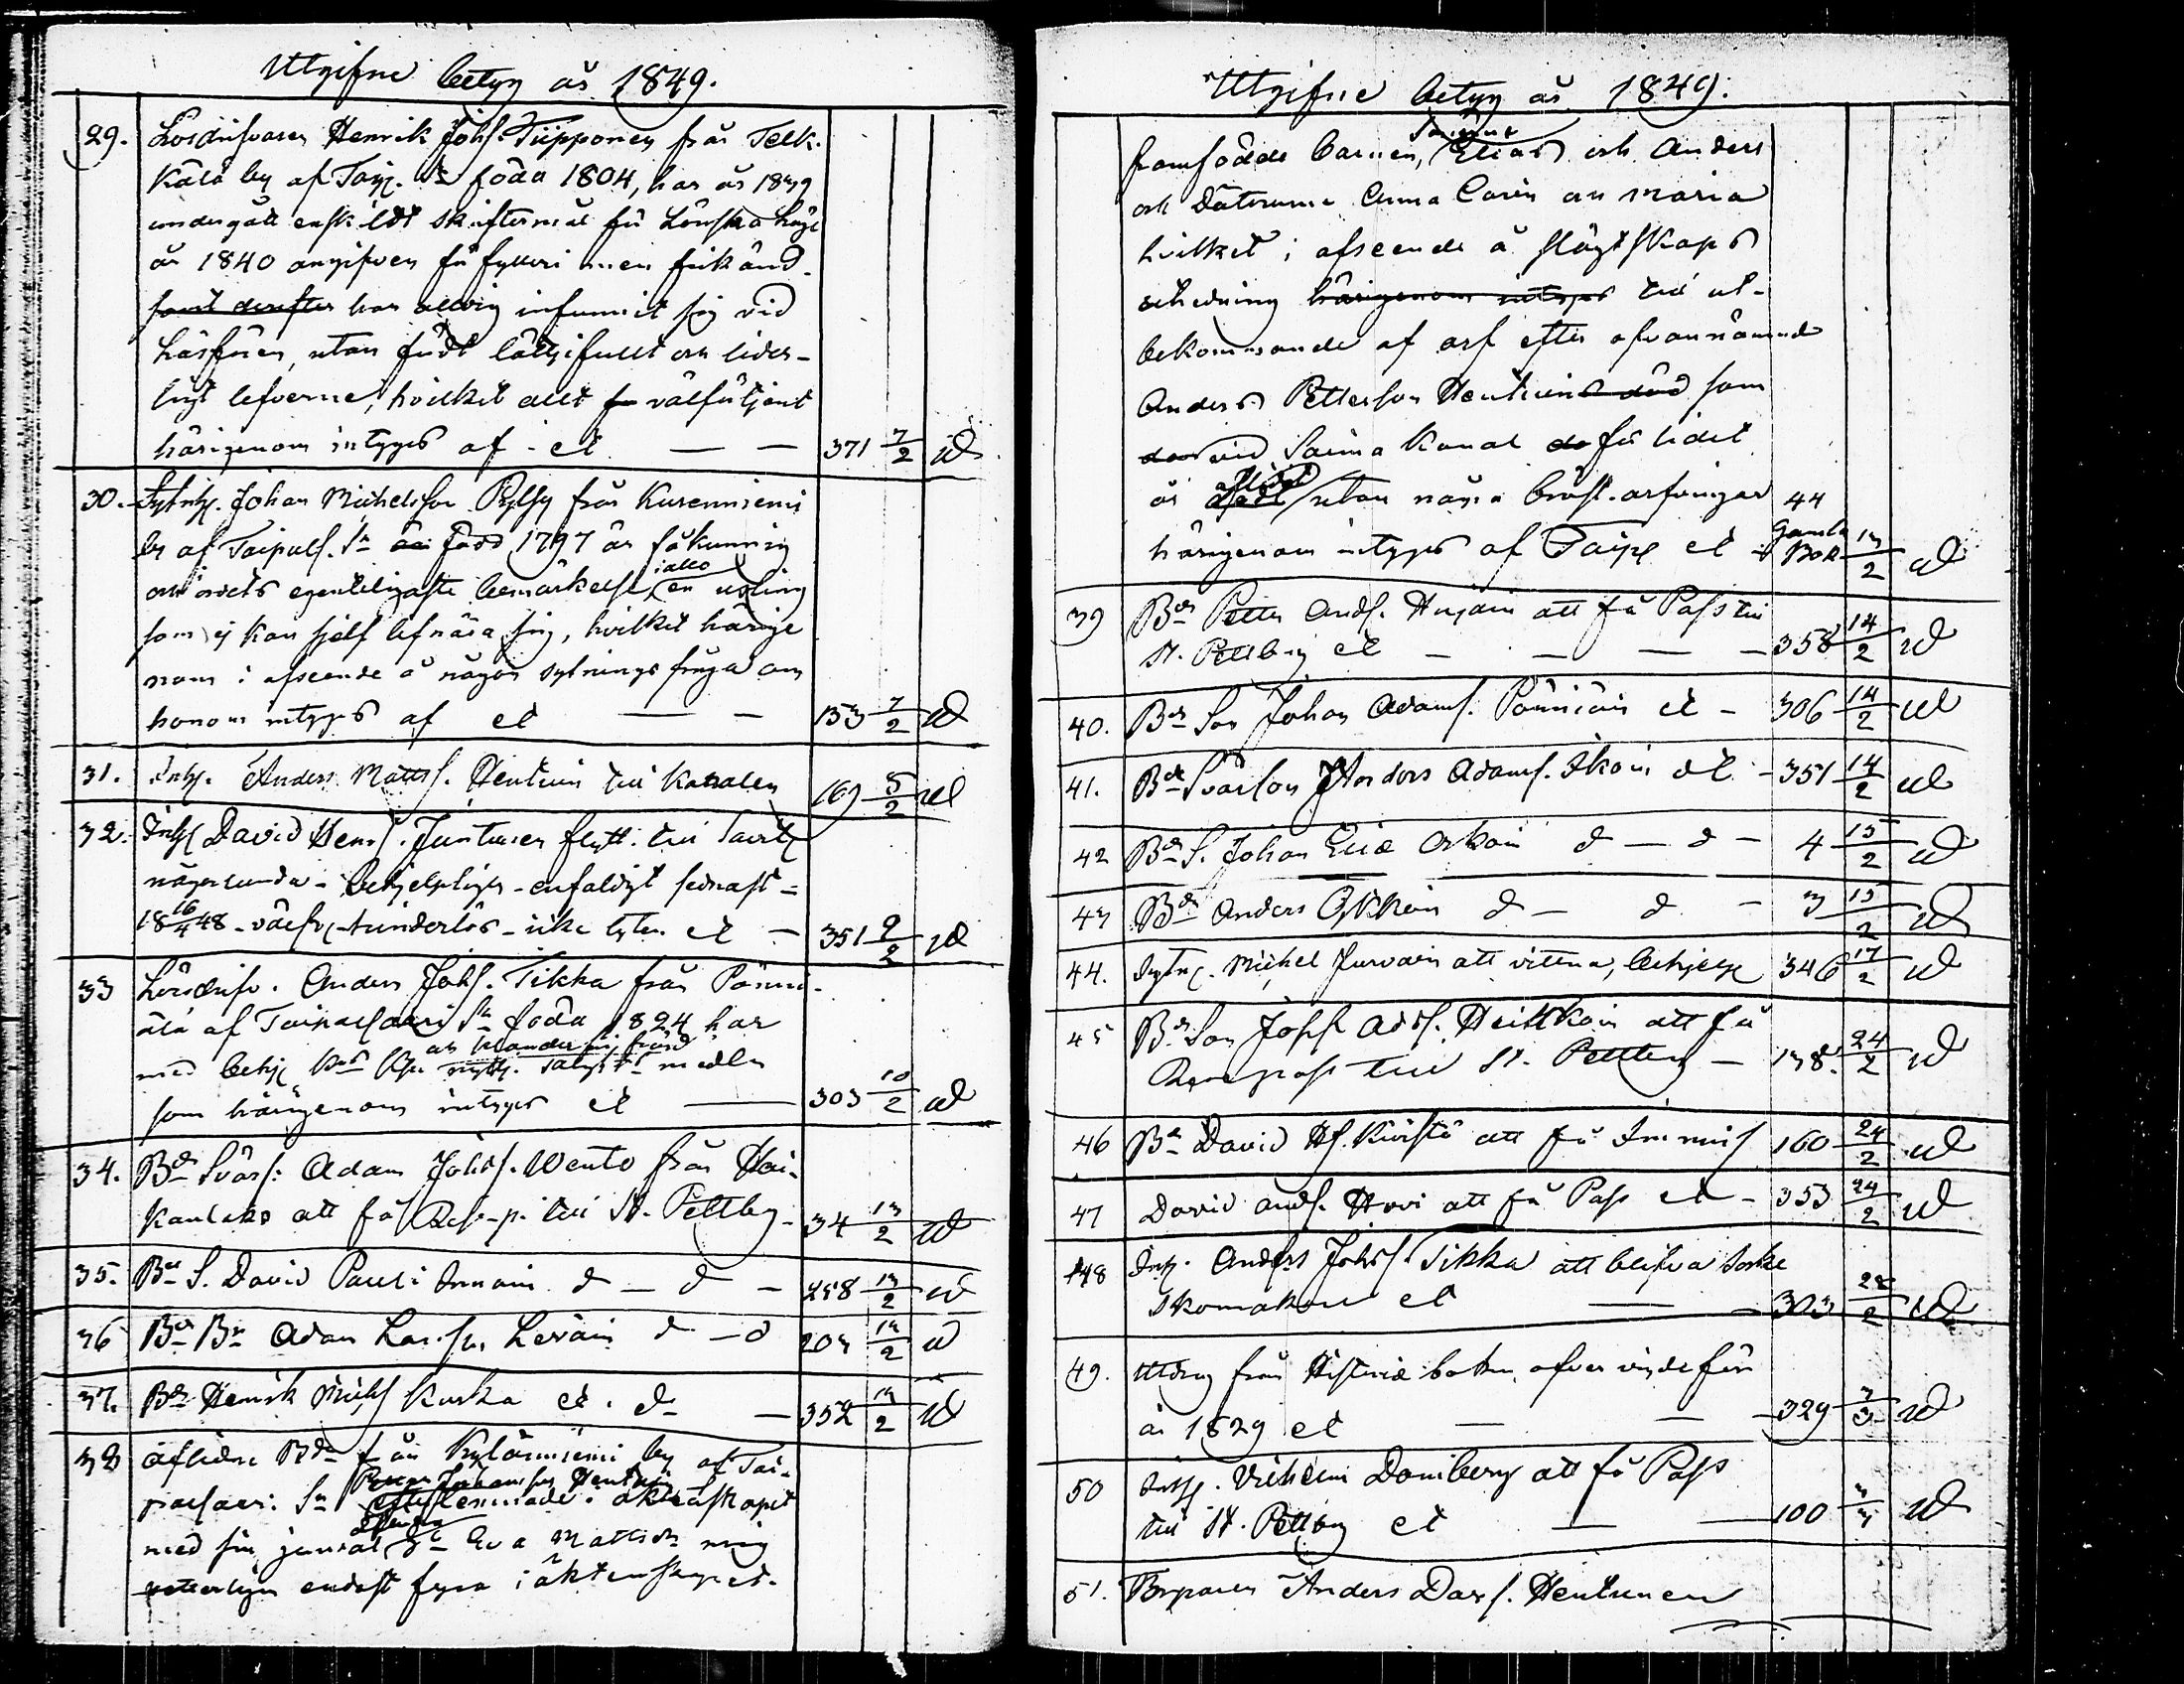 Utgifne betyg år 1849.
29. Lösdrifvaren Henrik Johs. Tiipponen från Telk-
kälä by af Taip. Sn född 1804, har år 1839
undergått enskildt skriftermål för Lönska läge
år 1840 angifven för fylleri men frikänd
samt derefter har aldrig infunnit sig vid
läsförhör, utan fördt lättsifullt och lider-
ligt lefverne, hvilket allt välförtjent
härigenom intygas af - et — — 371 7/2 ud
30. Sytn. Johan Michelsson Pylsy från Kurenniemi
by af Taipals. Sn född 1797 är fåkunnig
i allo
och ordets egenteligaste bemärkelse, en usling
som ej kan sjelf lifnära sig, hvilket härige
nom i afseende å någon sytnings fråga om
honom intygas af et — — 133 7/2 ud
31. Inh. Anders Matts. Hentunen till Kanalen 169 5/2 ud
32. Inh. David Henr. Juntunen flytt. till Savit
någorlunda - behjelpligen - enfaldigt sednast =
18 16/4 48 - väfr. - hinderlös - icke lyten et — 351 9/2 ud
33 Lösdrifv. Anders Johs. Tikka från Pönni-
älä af Taipalsaari Sn född 1824 har
med behj. nyttj. salighets medlen
som härigenom intygas et — 303 10/2 ud
34. Bd Svärs: Adam Johs. Wento från Hai-
kanlaks att få Resp-p. till St. Pettbg - 34 13/2 ud
35. Bd S. David Pauli Innain d — d — 258 13/2 ud
36 Bd Br Adam Larss. Leväin d — d 203 13/2 ud
37. Bd Henrik Michs Kuska et. d — 352 13/2 ud
38 Aflidne Bd från Kylänniemi by af Tai-
Petter Johansson Hentuin
palsaari Sn efterlemnade i äktenskapet
med sin jemväl Eva Mattsdr
endast fyra i äktenskapet
Utgifne betyg år 1849.
Sönerne
framfödde barnen, Elias och Anders
och Döttrarne Anna Carin och Maria
hvilket i afseende å slägtskaps
utredning härigenom intygas till ut-
bekommande af arf efter ofvannämnde
Anders Petterson Hentuins död som
vid Saima Kanal förlidet
aflidit
år utan några bröst-arfvingar 44
härigenom intygas af Taip. et Gamla Bok 13/2 ud
39 Bd Petter Ands. Hujain att få Pass till
St. Pettbg et — — — — 358 14/2 ud
40. Bd Son Johan Adams. Pönniäin et — 306 14/2 ud
41. Bd Svärson Anders Adams. Ikoin et — 351 14/2 ud
42 Bd S. Johan Eliæ Orkoin d — d — 4 15/2 ud
43 Bd Anders Orkkoin d — d — 3 15/2 ud
44. Sytn. Michel Jurvain att vittna, behjelp 346 17/2 ud
45 Bd Son Johs Ads. Heitkoin att få
Resepass till St. Pettbg — 138. 24/2 ud
46 Bd David Hs. Kuistö att få Immis 160 24/2 ud
47 David Ands. Hovi att få Pass et — 353 24/2 ud
48 Inh. Anders Johs. Tikka att blifva Socke
Skomakare et — — 303 28/2 ud
49. Utdrag från Historiæ boken
år 1829 et — — — 329 3/3 ud
50 Inh. Vilhelm Domberg att få Pass
till St. Pettbg et — — 100 4/3 ud
51. Torparen Anders Davs. Hentunen